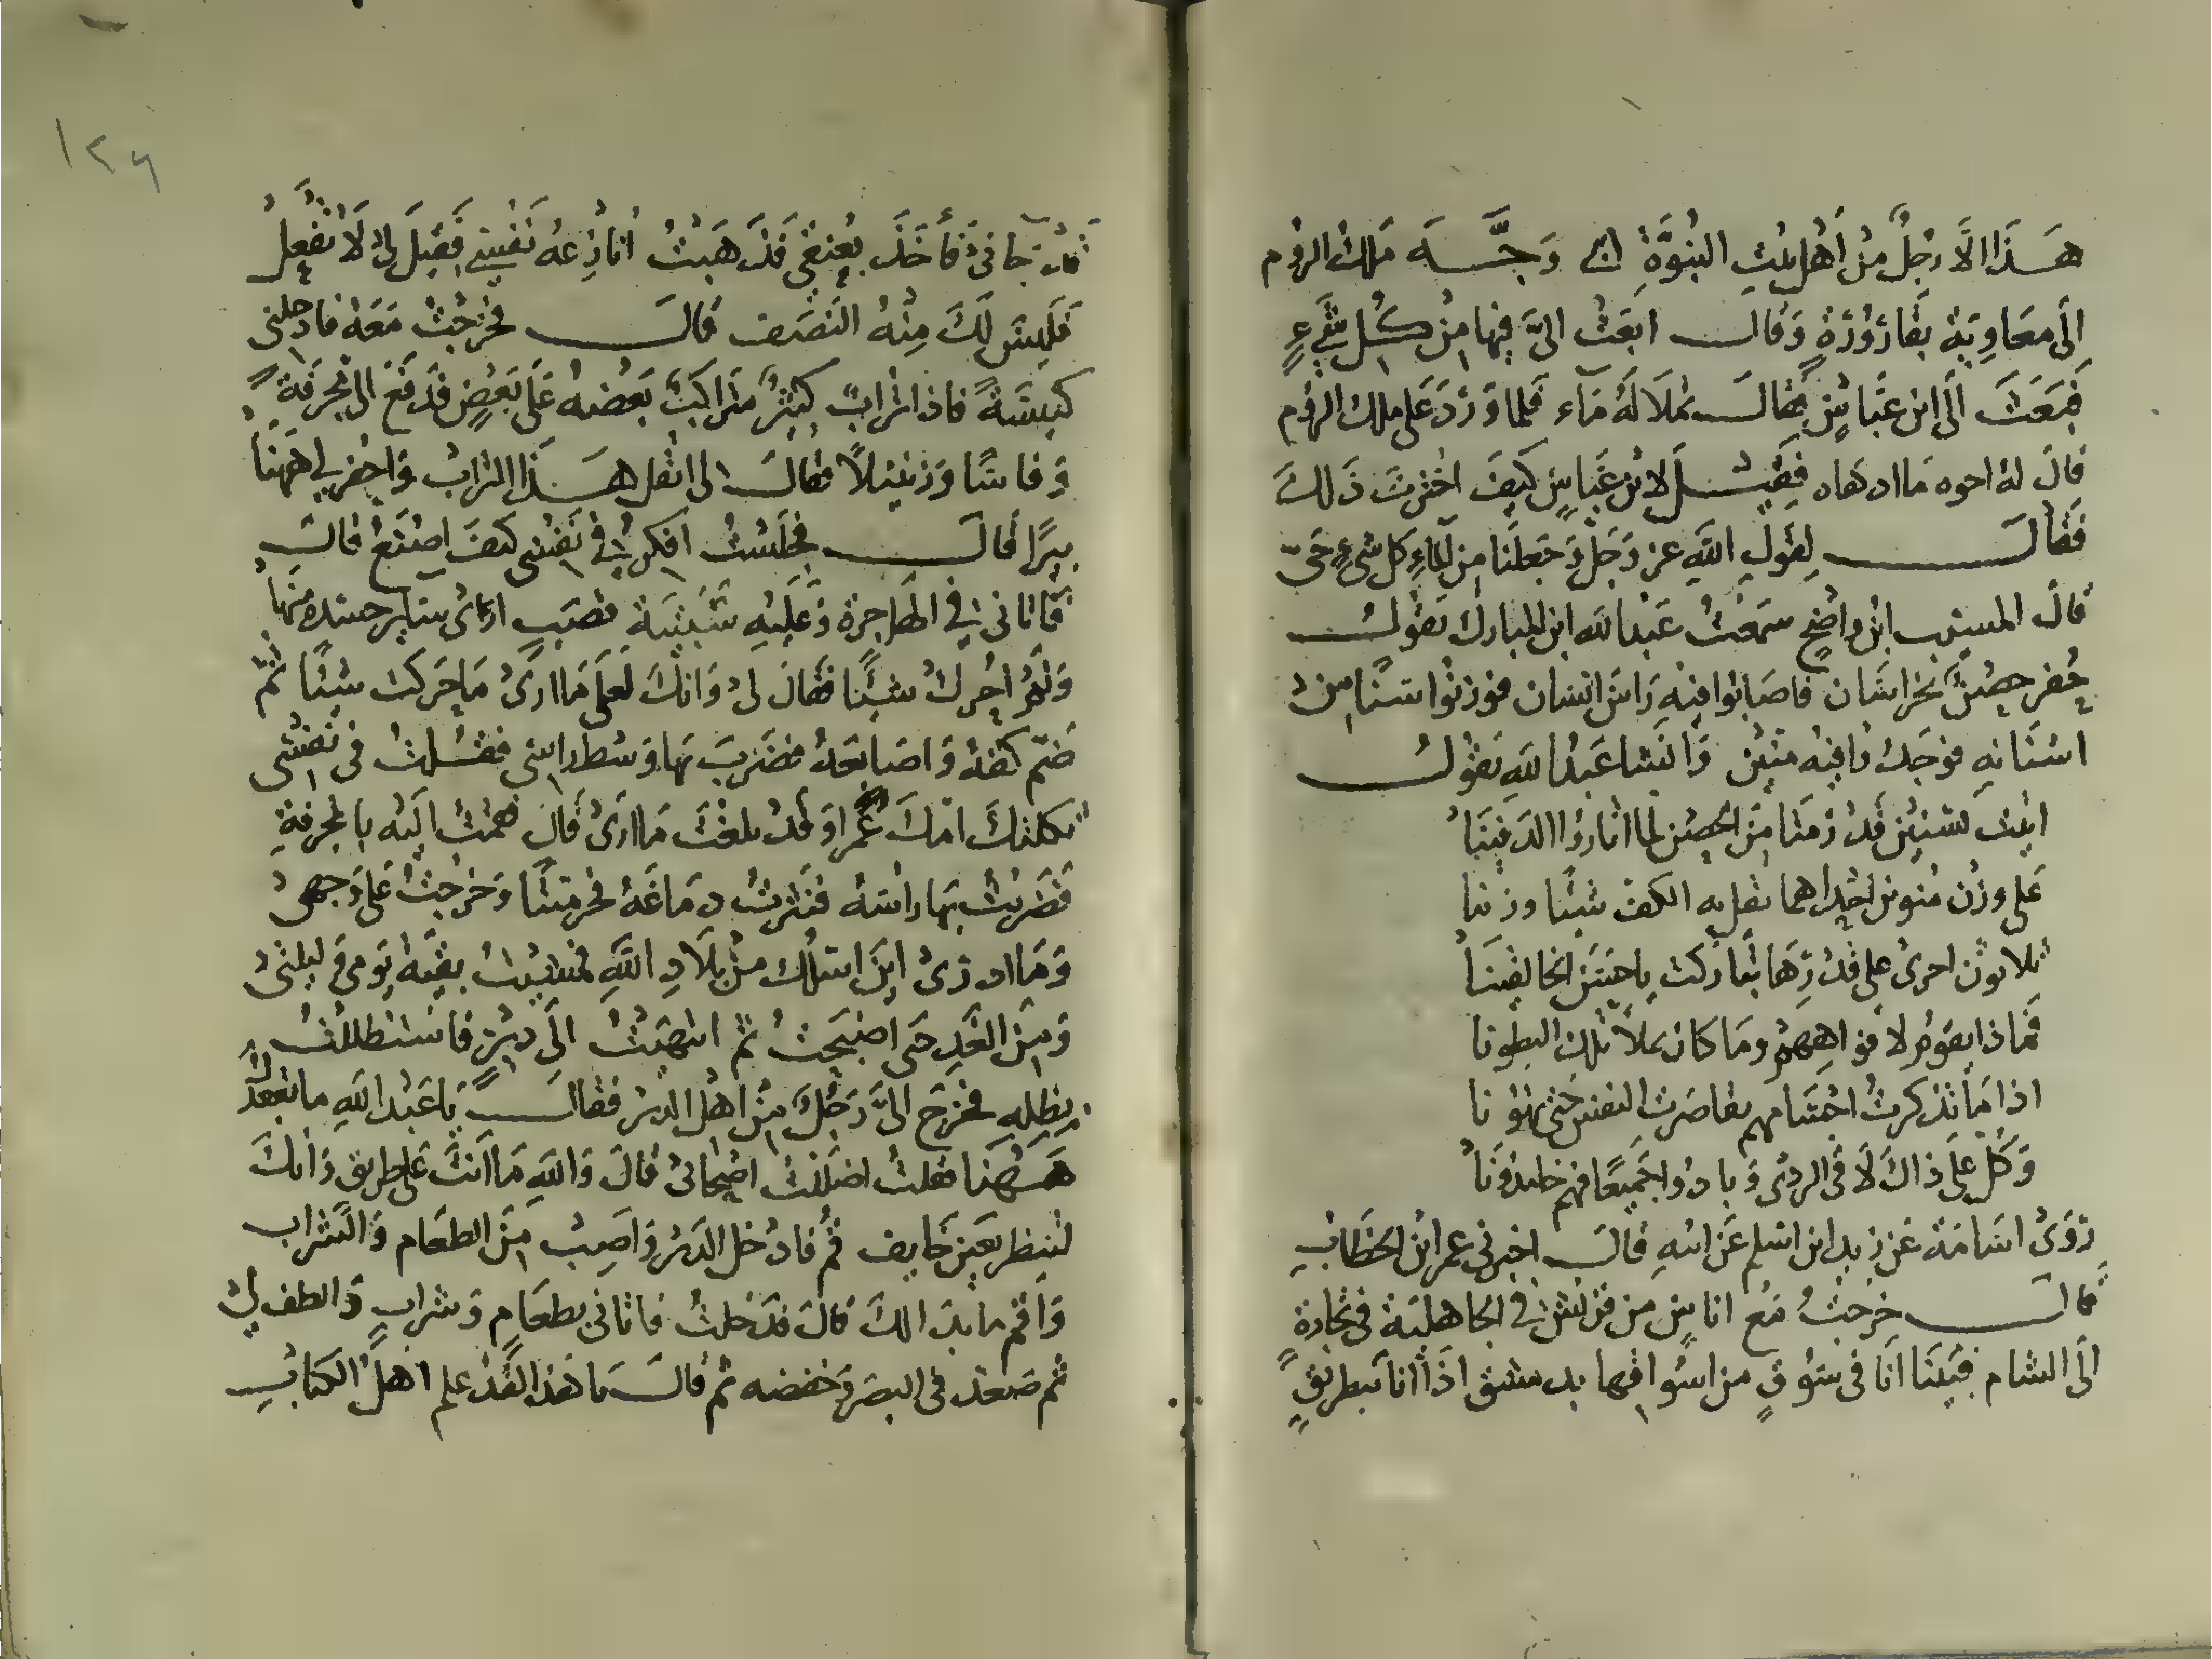 هذا الا رجل من اهل بيت النبوة وجه ملك الروم
الى معاوية بقارورة وقال ابعث الي فيها من كل شيء
فبعث الى ابن عباس فقال تملا له ماء فلما ورد على ملك الروم
قال له اخوه ما ادهاه فقيل لابن عباس كيف اخترت ذلك
فقال لقول الله عز وجل وجعلنا من الماء كل شيء حي
قال المسيب ابن واضح سمعت عبد الله ابن المبارك يقول
حفر حصن بخراسان فاصابوا فيه راس انسان فوزنوا سنا من
اسنانه فوجدوا فيه منين وانشا عبد الله يقول
اتيت بسنين قد رمتا من الحصن لما اثاروا الدفينا
على وزن منوين احداهما تقل به الكف شيئا رزينا
ثلاثون اخرى على قدرها تباركت يا احسن الخالقينا
فماذا يقوم لافواههم وما كان يملا تلك البطونا
اذا ما تذكرت اجسامهم تقاصرت النفس حتى تهونا
وكل على ذاك لاقى الردى وبادوا جميعا فهم خامدونا
روى اسامة عن زيد ابن اسلم عن ابيه قال اخبرني عمر ابن الخطاب
قال خرجت مع اناس من قريش في الجاهلية في تجارة
الى الشام فبينا انا في سوق من اسواقها بدمشق اذا انا ببطريق
١٢٦
قد جاني فاخذ بعنقي فذهبت انازعه نفسي فقيل لي لا تفعل
فليس لك منه النصف قال فخرجت معه فادخلني
كنيسة فاذا تراب كثير متراكب بعضه على بعض فدفع الي مجرفة
وفاسا وزنبيلا فقال لي انقل هذا التراب واحفر لي ههنا
بيرا قال فجلست افكر في نفسي كيف اصنع قال
فاتاني في الهاجرة وعليه سبنية قصب ارى ساير جسده منها
ولم احرك شيئا فقال لي وانك لعلى ما ارى ما حركت شيئا ثم
ضم كفه واصابعه فضرب بها وسط راسي فقلت في نفسي
ثكلتك امك عمر او قد بلغت ما ارى قال فقمت اليه بالمجرفة
فضربت بها راسه فنثرت دماغه فخر ميتا وخرجت على وجهي
وما ادري اين اسلك من بلاد الله فمشيت بقية يومي وليلتي
ومن الغد حتى اصبحت ثم انتهيت الى دير فاستظللت
بظله فخرج الي رجل من اهل الدير فقال يا عبد الله ما يقعدك
ههنا فقلت اضللت اصحابي قال والله ما انت على طريق وانك
لتنظر بعين خايف قم فادخل الدير واصب من الطعام والشراب
واقم ما بدا لك قال فدخلت فاتاني بطعام وشراب والطف لي
ثم صعد في البصر وخفضه ثم قال يا هذا لقد علم اهل الكتاب